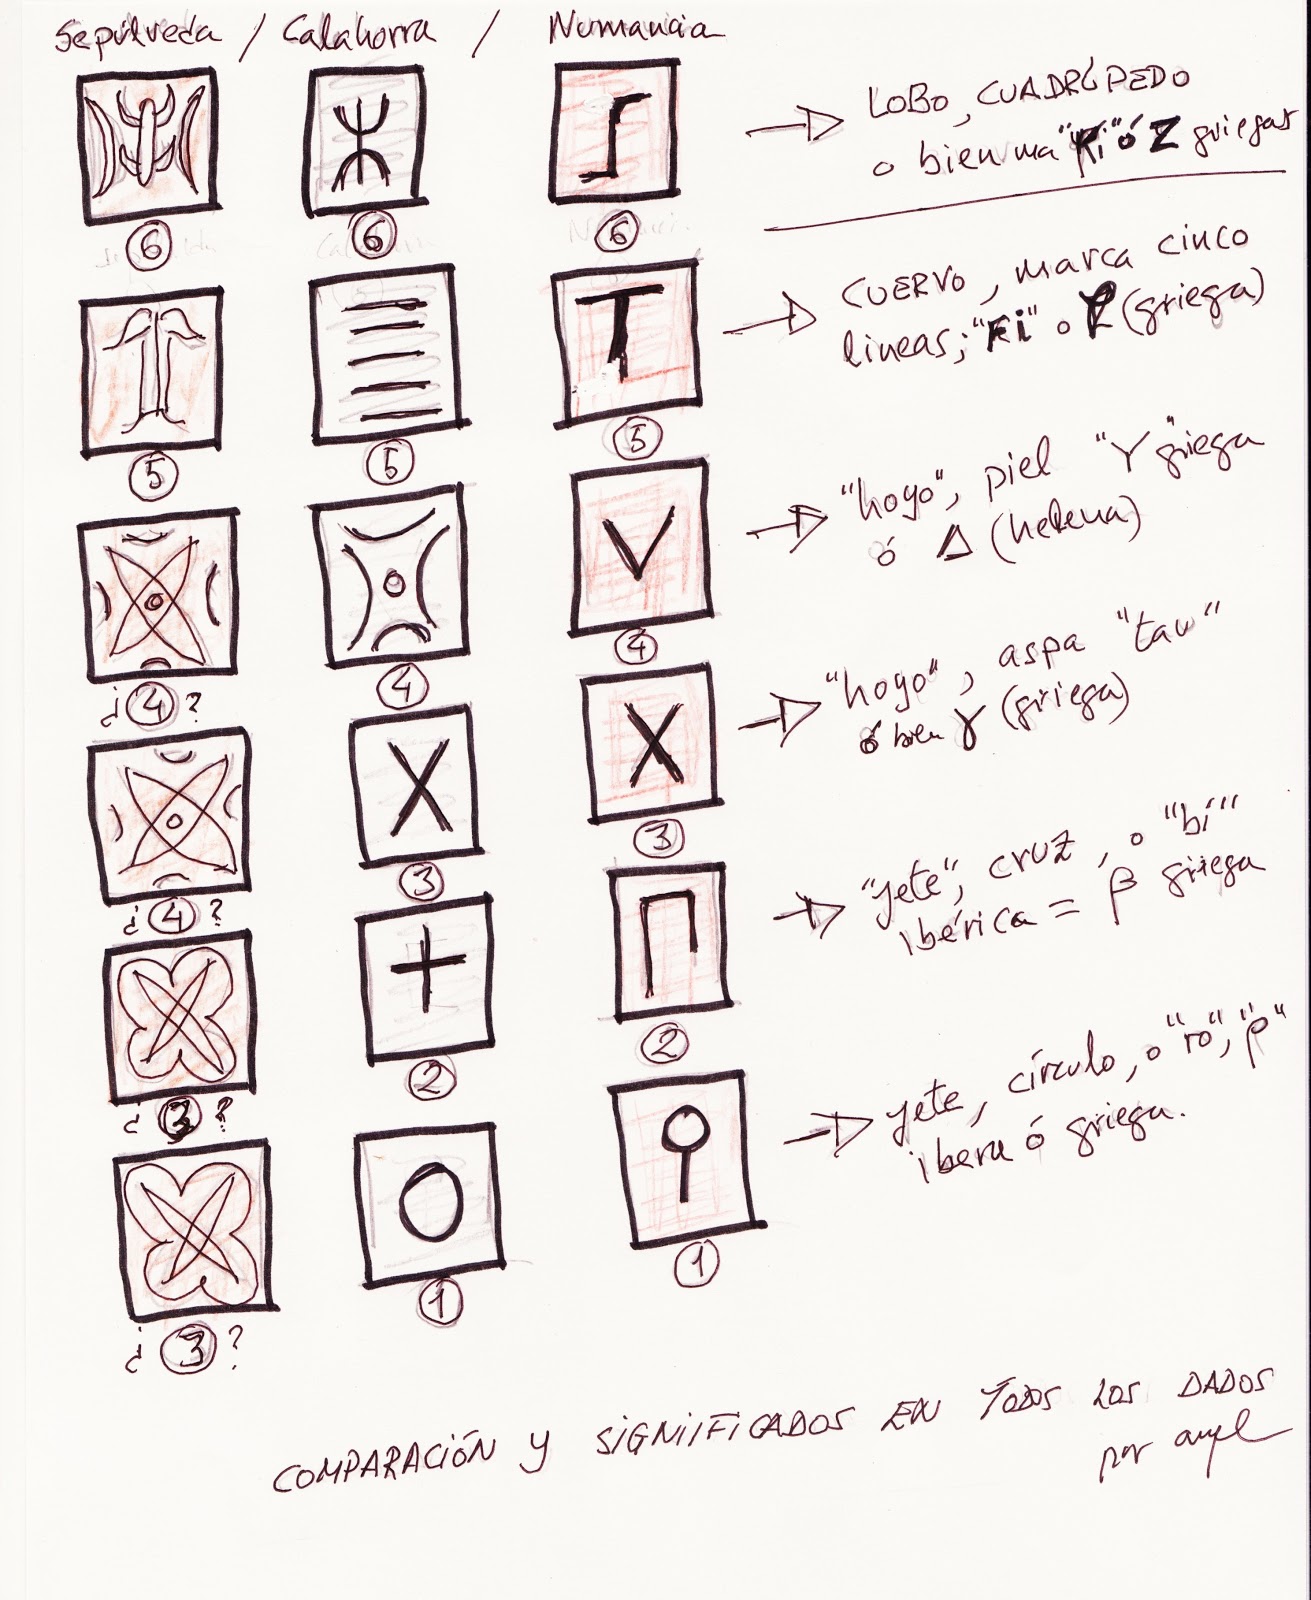 Sepúlveda / Calahorra / Numancia
LOBO, CUADRÚPEDO
o bien ma "Ki" ó Z griegas
6 6 6
CUERVO, marca cinco
lineas; "Ki" o (griega)
5 5 5
"hoyo", piel "Y" griega
ó Δ (helena)
¿4? 4 4
"hoyo", aspa "tau"
ó bien γ (griega)
¿4? 3 3
"yete", cruz, o "bi"
ibérica = β griega
¿3? 2 2
yete, círculo, o "ro", "ρ"
ibera ó griega.
¿3? 1 1
COMPARACIÓN Y SIGNIIFICADOS EN TODOS LOS DADOS
por angel